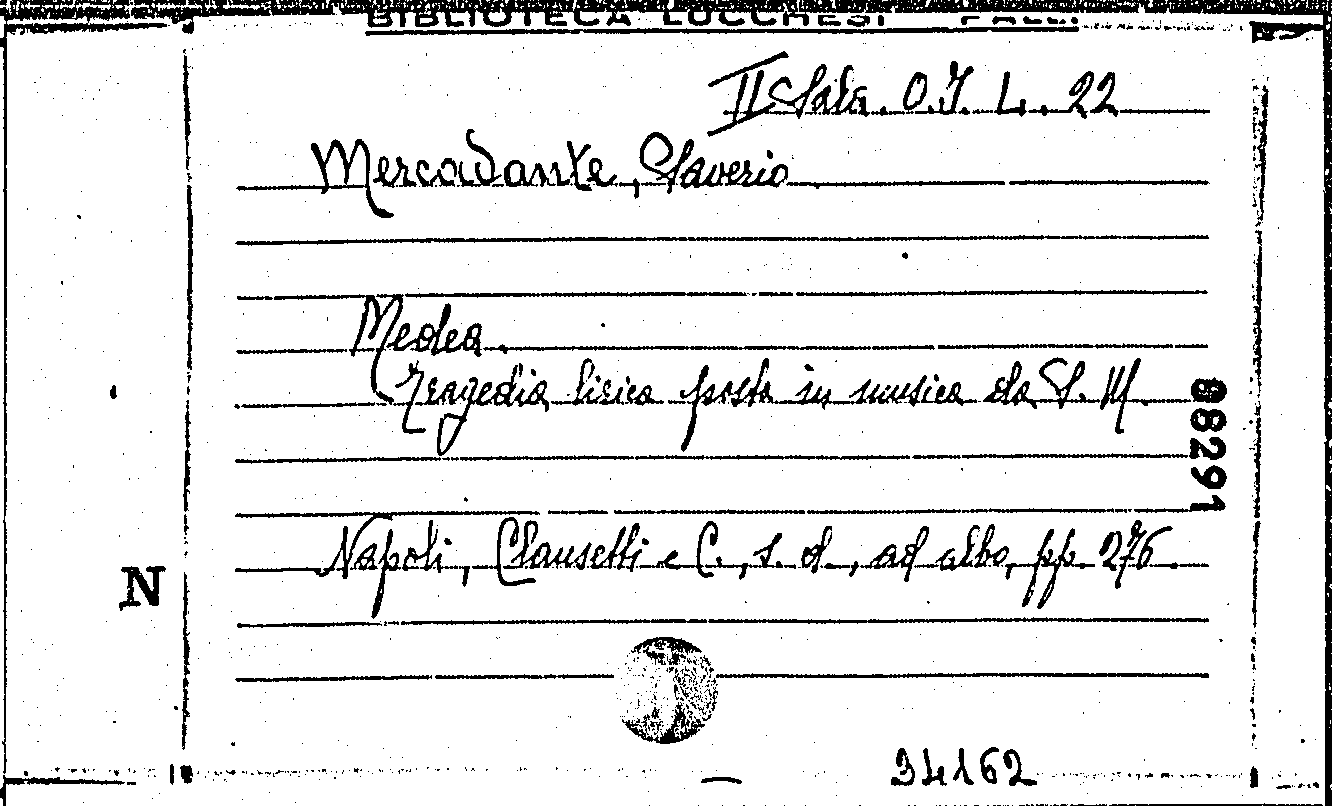 BIBLIOTECA LUCCHESI PALLI
II Sala. O.I. L. 22
Mercadante, Saverio
Medea.
Tragedia lirica posta in musica da S. M.
88291
Napoli, Clausetti e C., s. d., ad albo, pp. 276.
N
34162